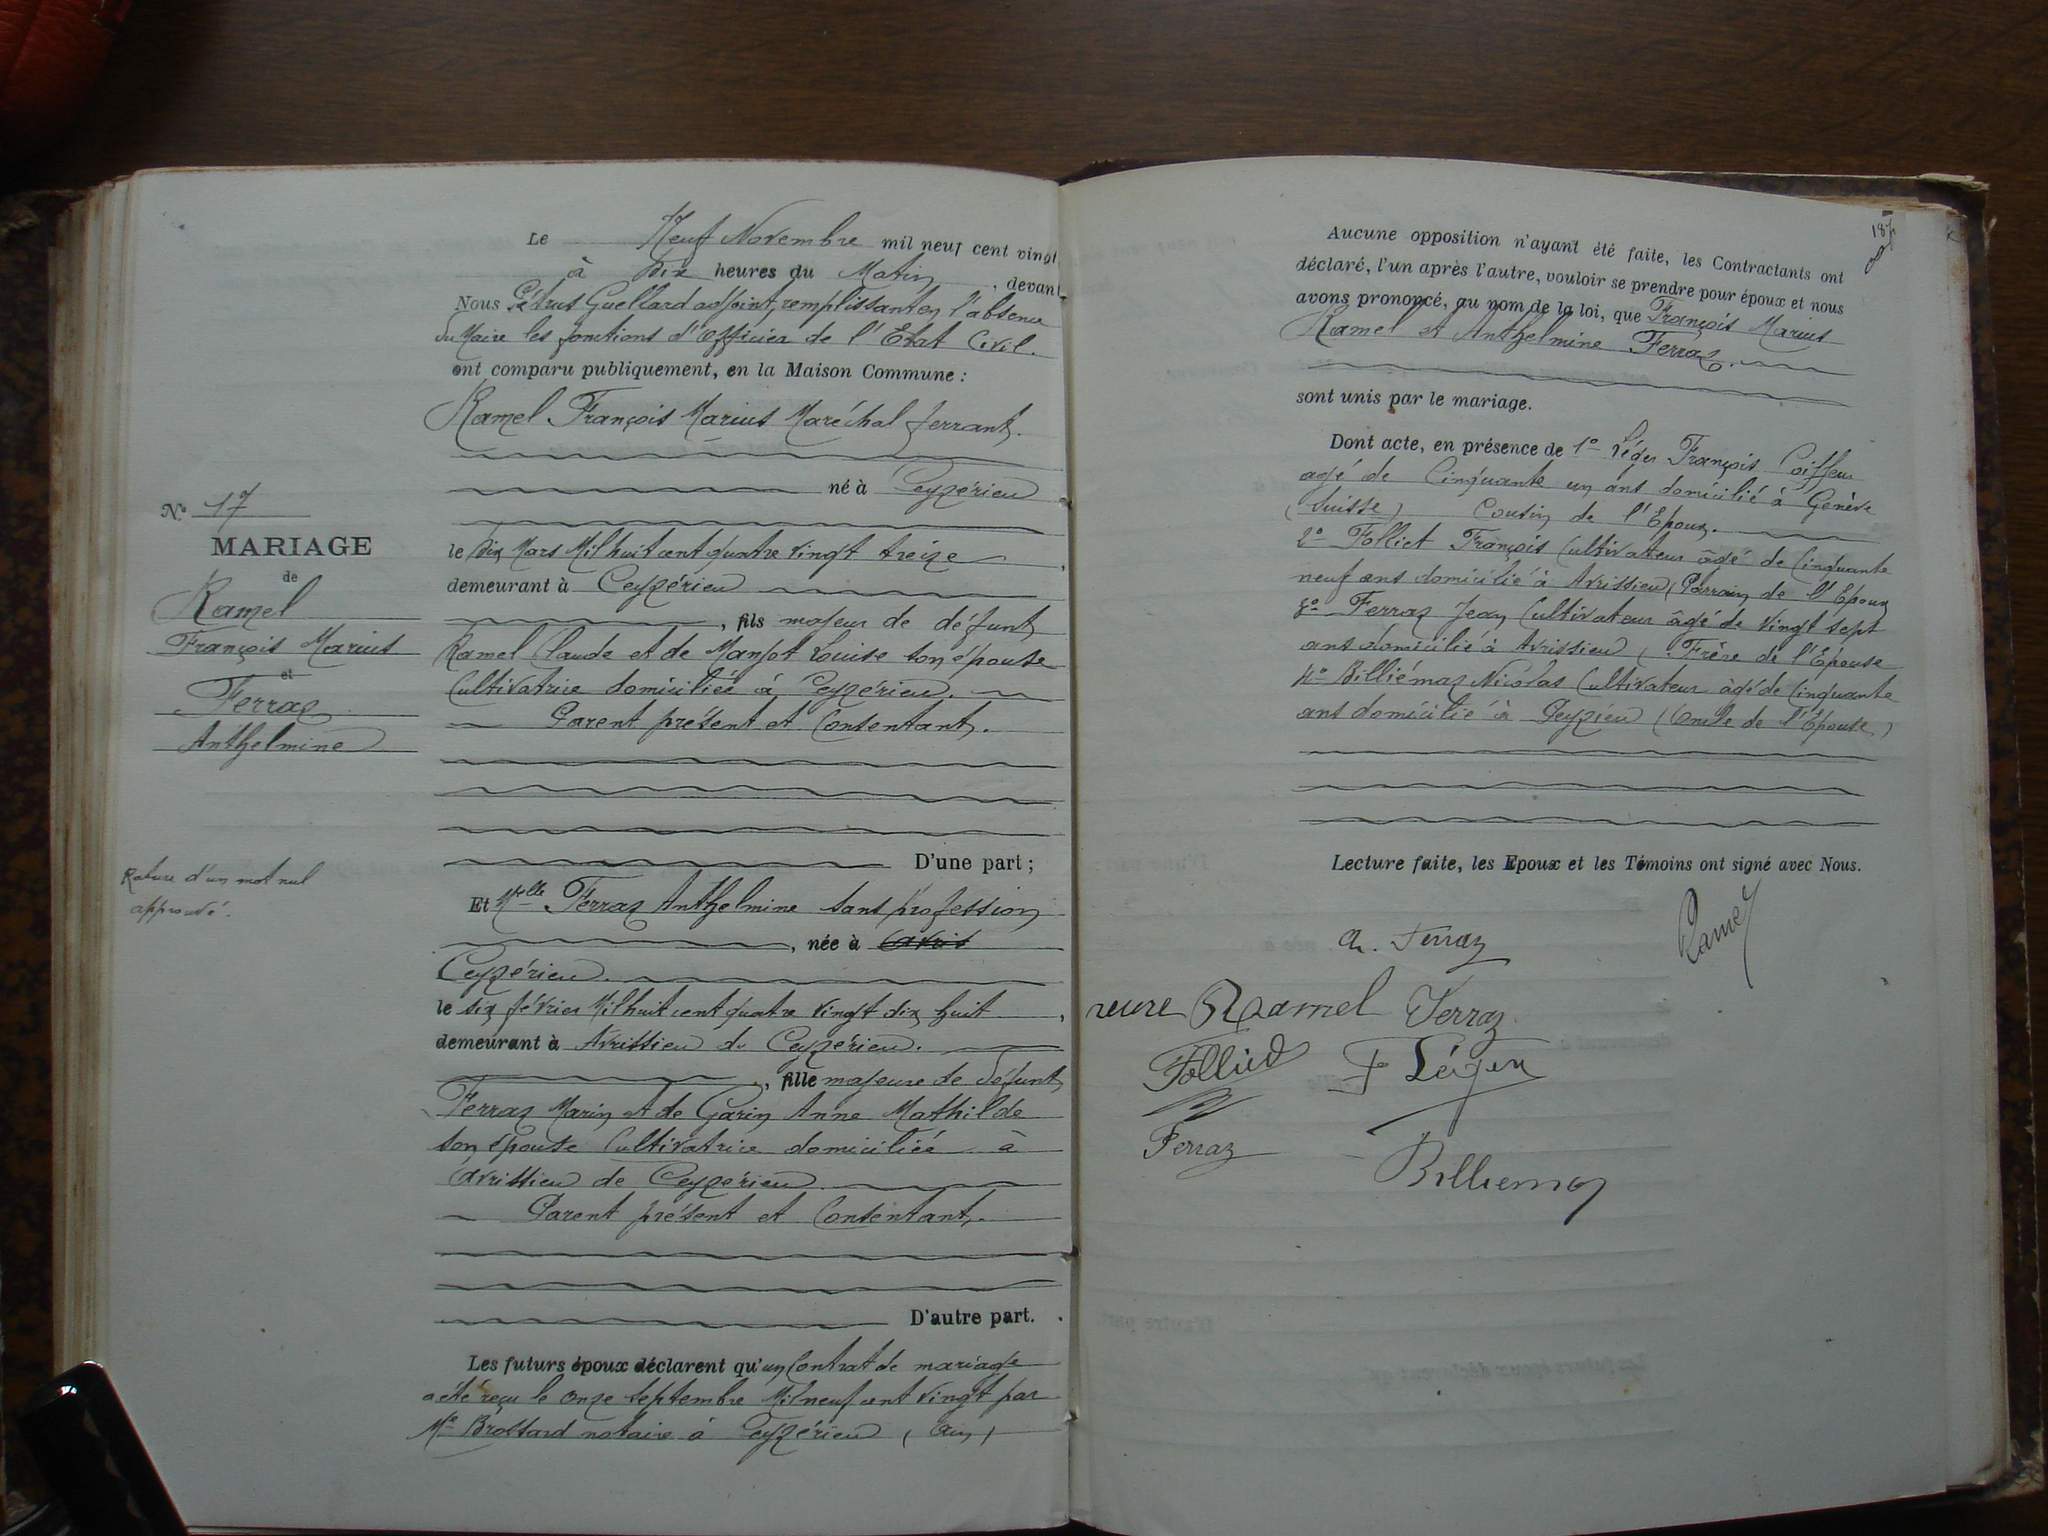 Le Neuf Novembre mil neuf cent vingt
à Dix heures du Matin, devant
Nous Pétrus Guellard adjoint, remplissant en l'absence
du Maire les fonctions d'officier de l'Etat Civil.
ont comparu publiquement, en la Maison Commune :
Ramel François Marius Maréchal ferrant.
né à Ceyzérieu
le Dix Mars Mil huit cent quatre vingt treize,
demeurant à Ceyzérieu
, fils majeur de défunt
Ramel Claude et de Manjot Louise son épouse
Cultivatrice domiciliée à Ceyzérieu.
Parent présent et Consentant.
D'une part ;
Nº 17
MARIAGE
de
Ramel
François Marius
et
Ferraz
Anthelmine
Rature d'un mot nul
approuvé.
Et Melle Ferraz Anthelmine sans profession
, née à Avris
Ceyzérieu.
le six février Mil huit cent quatre vingt dix huit,
demeurant à Avrissieu de Ceyzérieu.
, fille majeure de défunt
Ferraz Marin et de Garin Anne Mathilde
son épouse Cultivatrice domiciliée à
Avrissieu de Ceyzérieu
Parent présent et Consentant.
D'autre part.
Les futurs époux déclarent qu'un Contrat de mariage
a été reçu le onze septembre Mil neuf cent vingt par
Me Brossard notaire à Ceyzérieu (Ain)
187
Aucune opposition n'ayant été faite, les Contractants ont
déclaré, l'un après l'autre, vouloir se prendre pour époux et nous
avons prononcé, au nom de la loi, que François Marius
Ramel et Anthelmine Ferraz.
sont unis par le mariage.
Dont acte, en présence de 1º Léger François Coiffeur
agé de Cinquante un ans domicilié à Genève
(Suisse) Cousin de l'Epoux.
2º Folliet François Cultivateur âgé de Cinquante
neuf ans domicilié à Avrissieu (Parrain de l'Epoux
3º Ferraz Jean Cultivateur âgé de Vingt sept
ans domicilié à Avrissieu (Frère de l'Epouse
4º Billiémaz Nicolas Cultivateur âgé de Cinquante
ans domicilié à Peyzieu (Oncle de l'Epouse)
Lecture faite, les Epoux et les Témoins ont signé avec Nous.
Ramel
A. Ferraz
veuve Ramel Ferraz
Folliet F Léger
Ferraz
Billiemaz